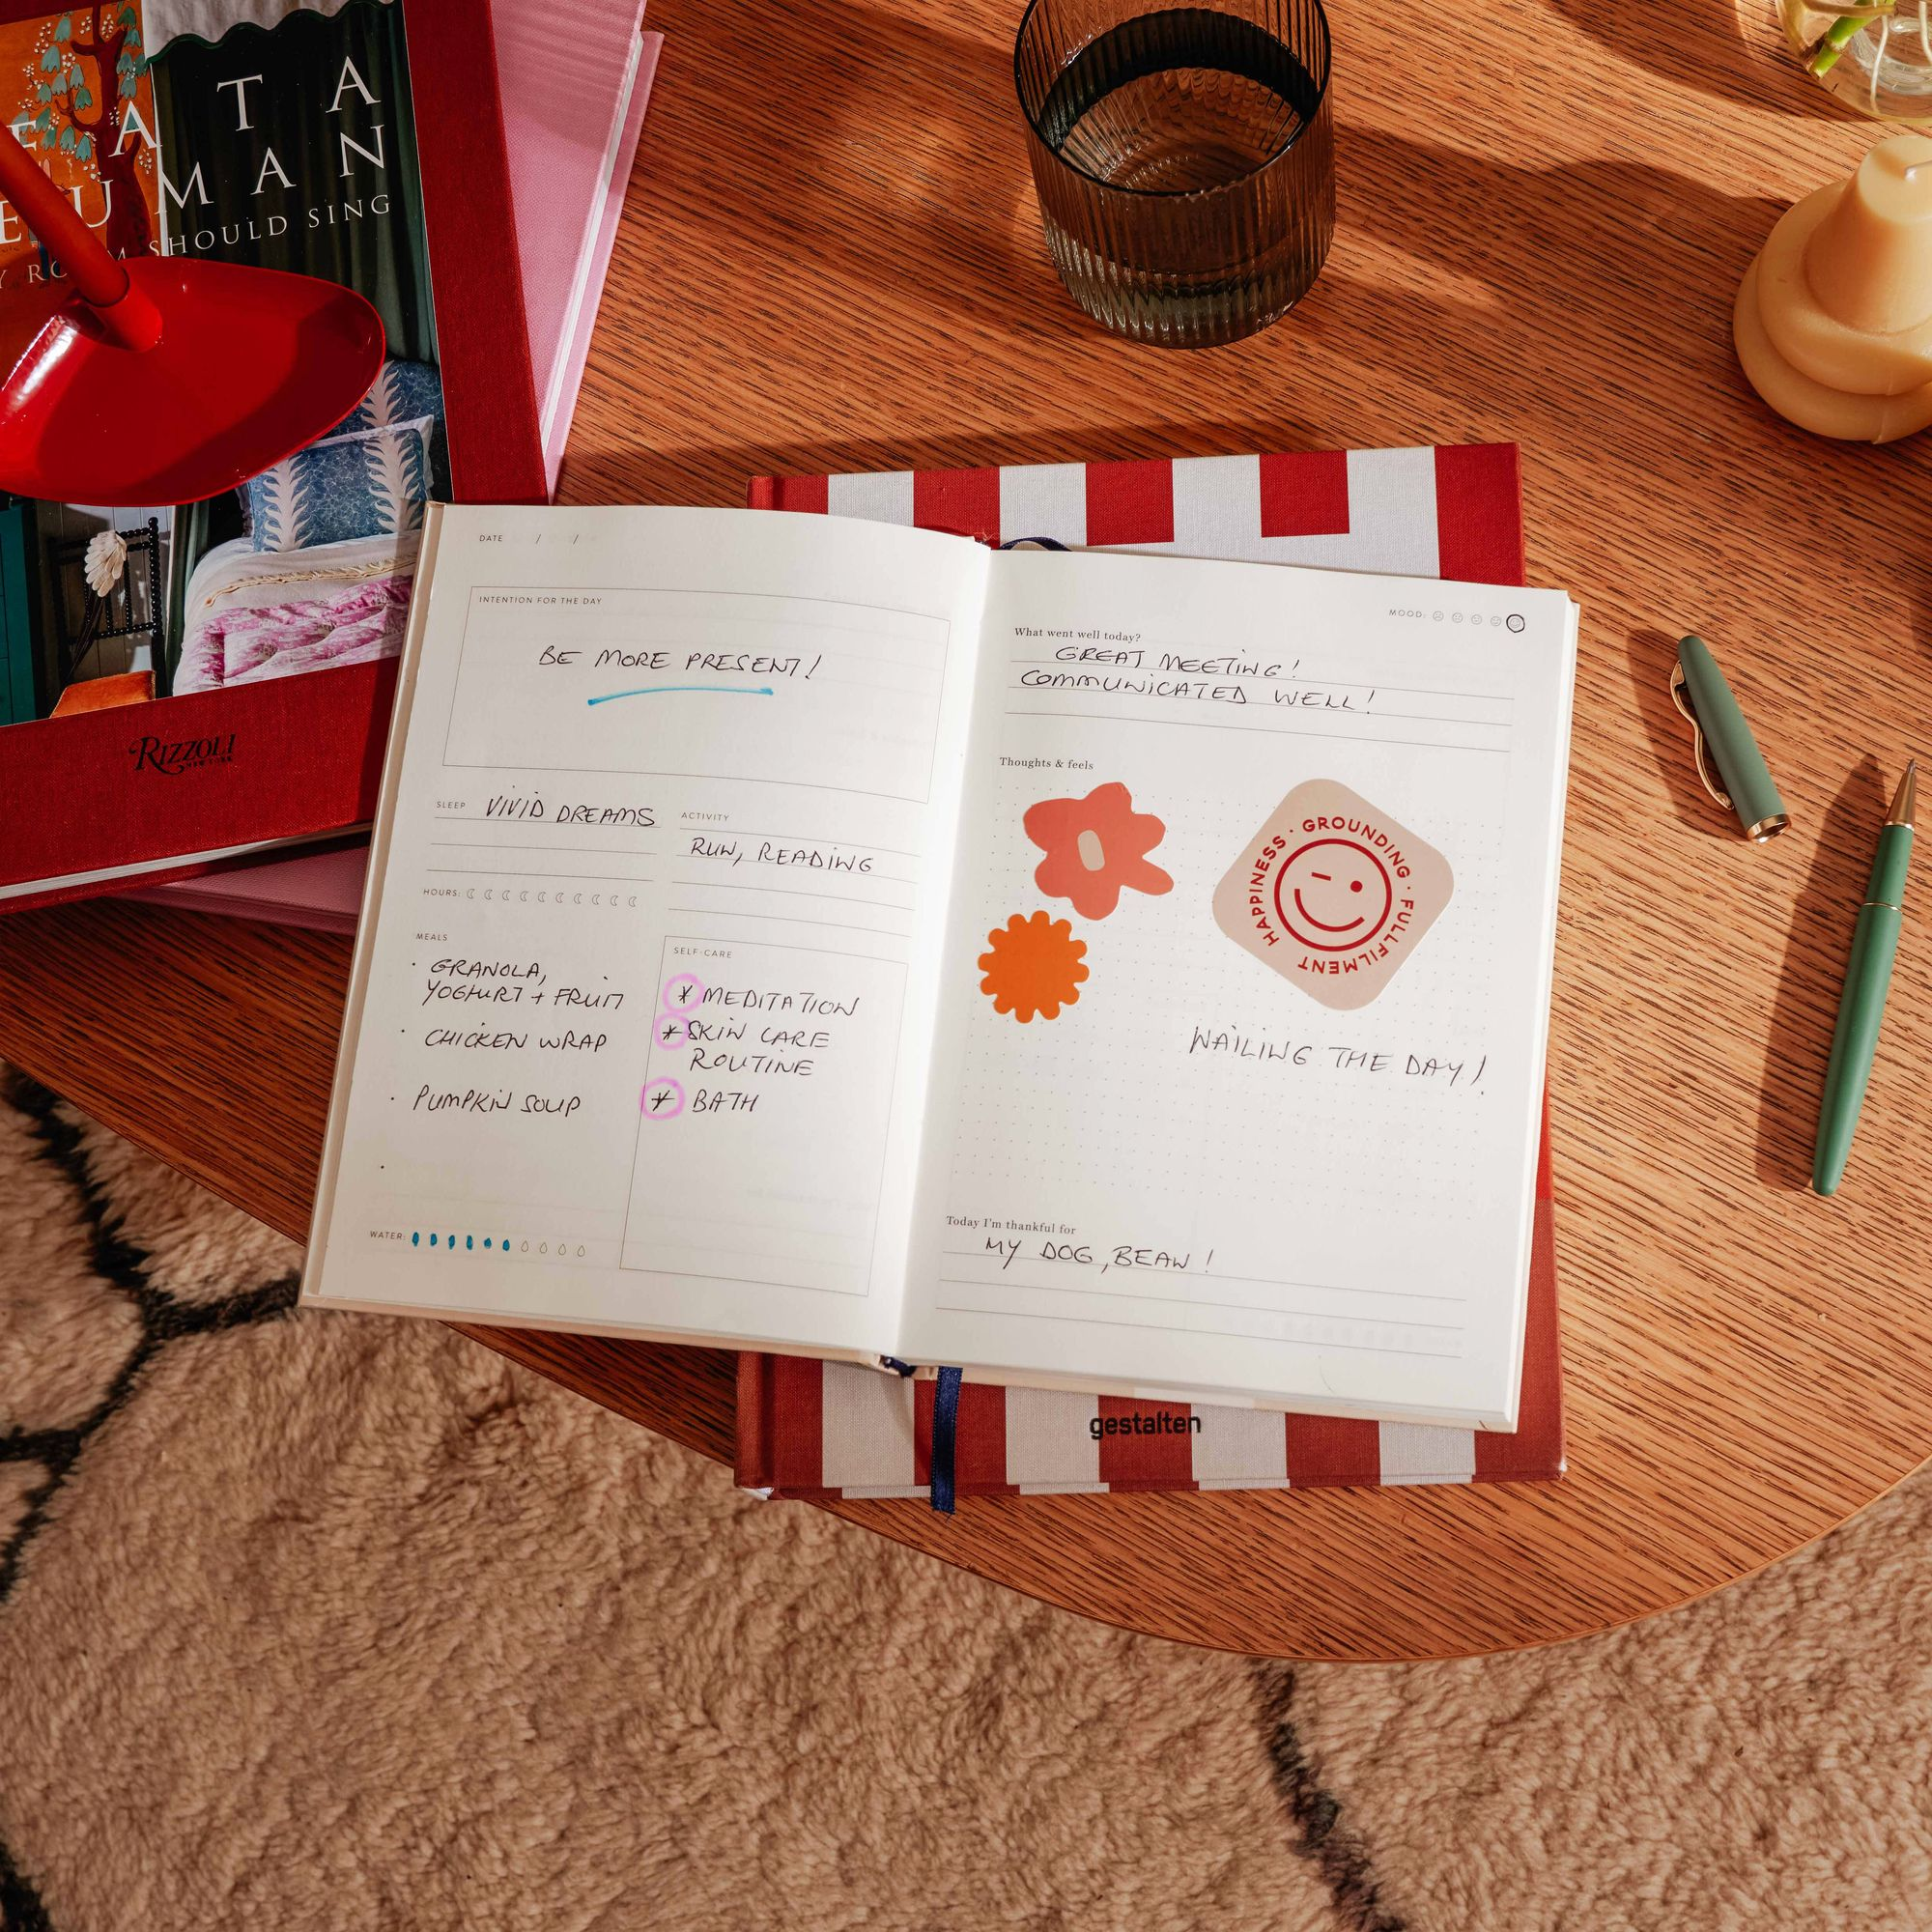 A T A
UMAN
SHOULD SING
RIZZOLI
NEW YORK
DATE / /
INTENTION FOR THE DAY
BE MORE PRESENT!
SLEEP VIVID DREAMS
ACTIVITY
RUN, READING
HOURS:
MEALS
· GRANOLA,
YOGHURT + FRUIT
· CHICKEN WRAP
· PUMPKIN SOUP
·
SELF-CARE
* MEDITATION
* SKIN CARE
ROUTINE
* BATH
WATER:
MOOD:
What went well today?
GREAT MEETING!
COMMUNICATED WELL!
Thoughts & feels
HAPPINESS · GROUNDING · FULLFILMENT
NAILING THE DAY!
Today I'm thankful for
MY DOG, BEAN!
gestalten